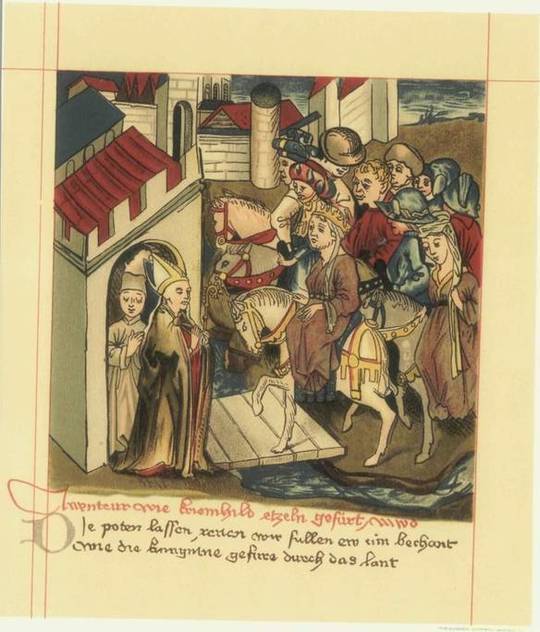 Awenteur wie kriemhild etzeln gefürt ward
Die poten lassen reiten wir süllen ew tün bechant
wie die künnginne gefüre durch das lant